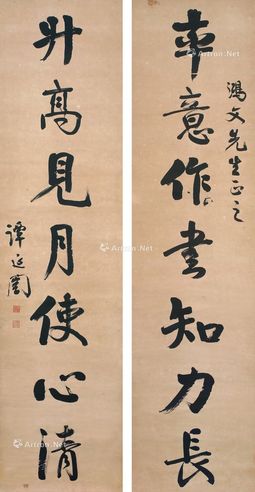 鴻文先生正之
率意作書知力長
升高見月使心清
譚延闓
Artron.Net
Artron.Net
Artron.Net
Artron.Net